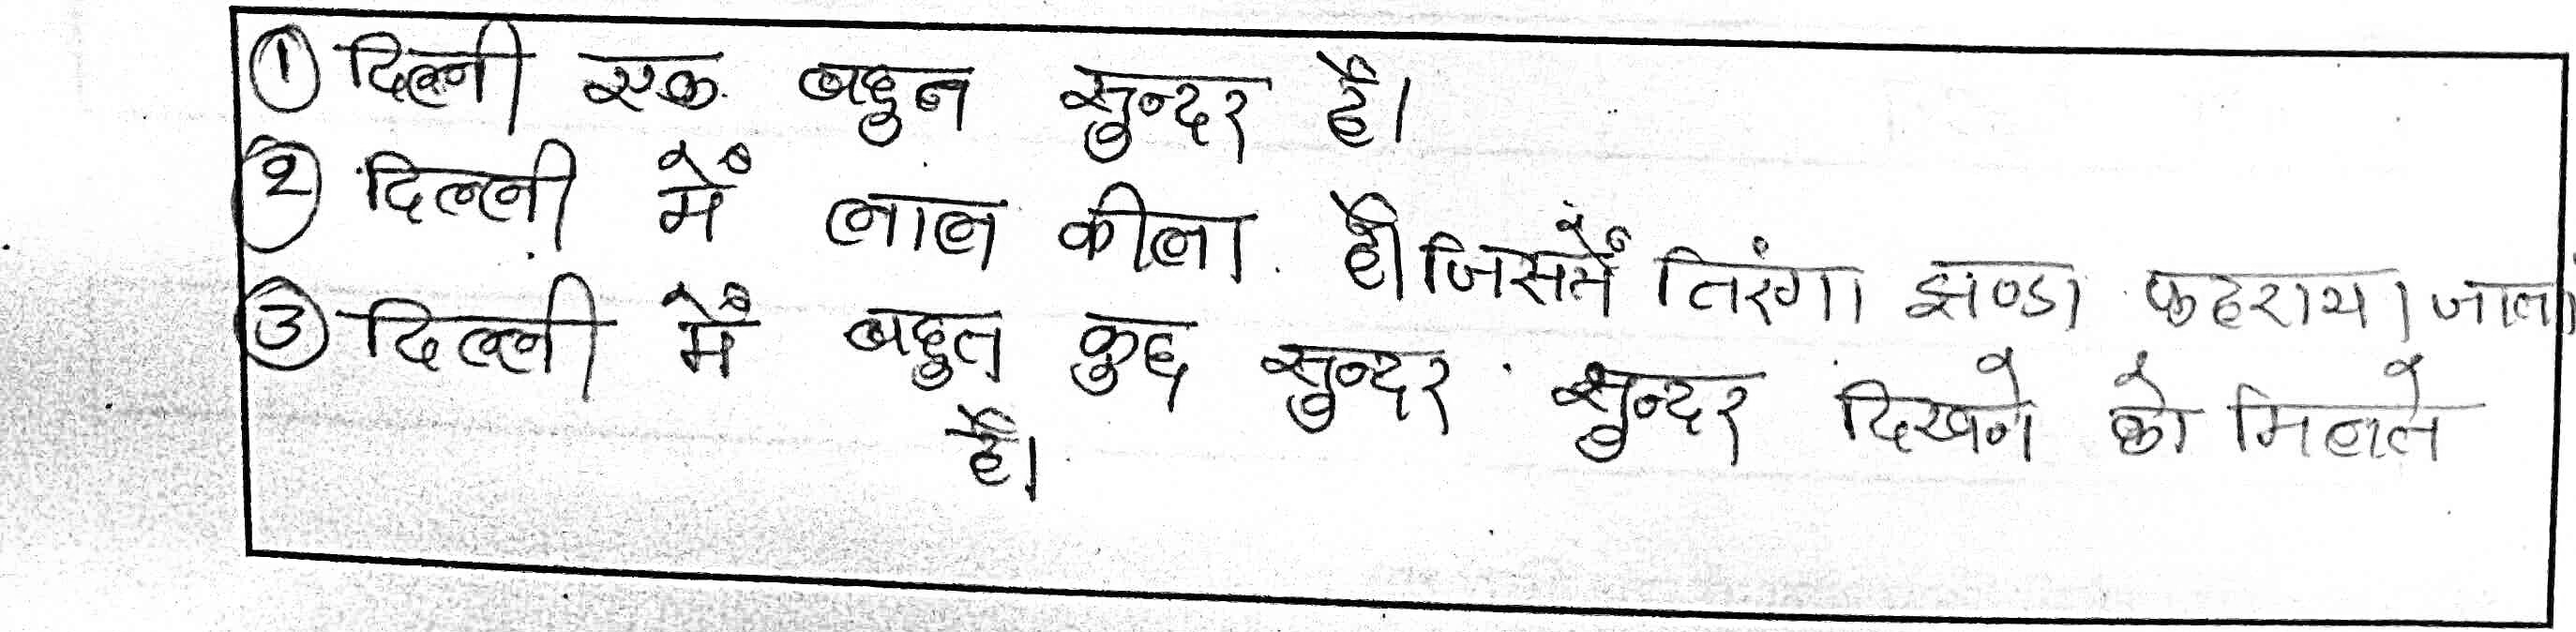 ① दिल्ली एक बहुत सुन्दर है।
② दिल्ली में लाल कीला है। जिसमें तिरंगा झण्डा फहराया जाता
③ दिल्ली में बहुत कुछ सुन्दर सुन्दर दिखने को मिलते
है।